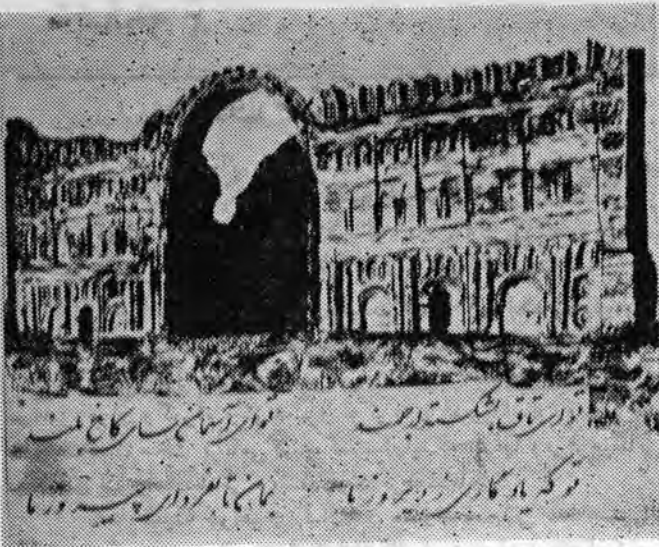 تو ای تاق بشکستهٔ ارجمند تو ای آسمان سای کاخ بلند
تو که یادگاری ز دیروز ما بمان تا بفردای پیروز ما